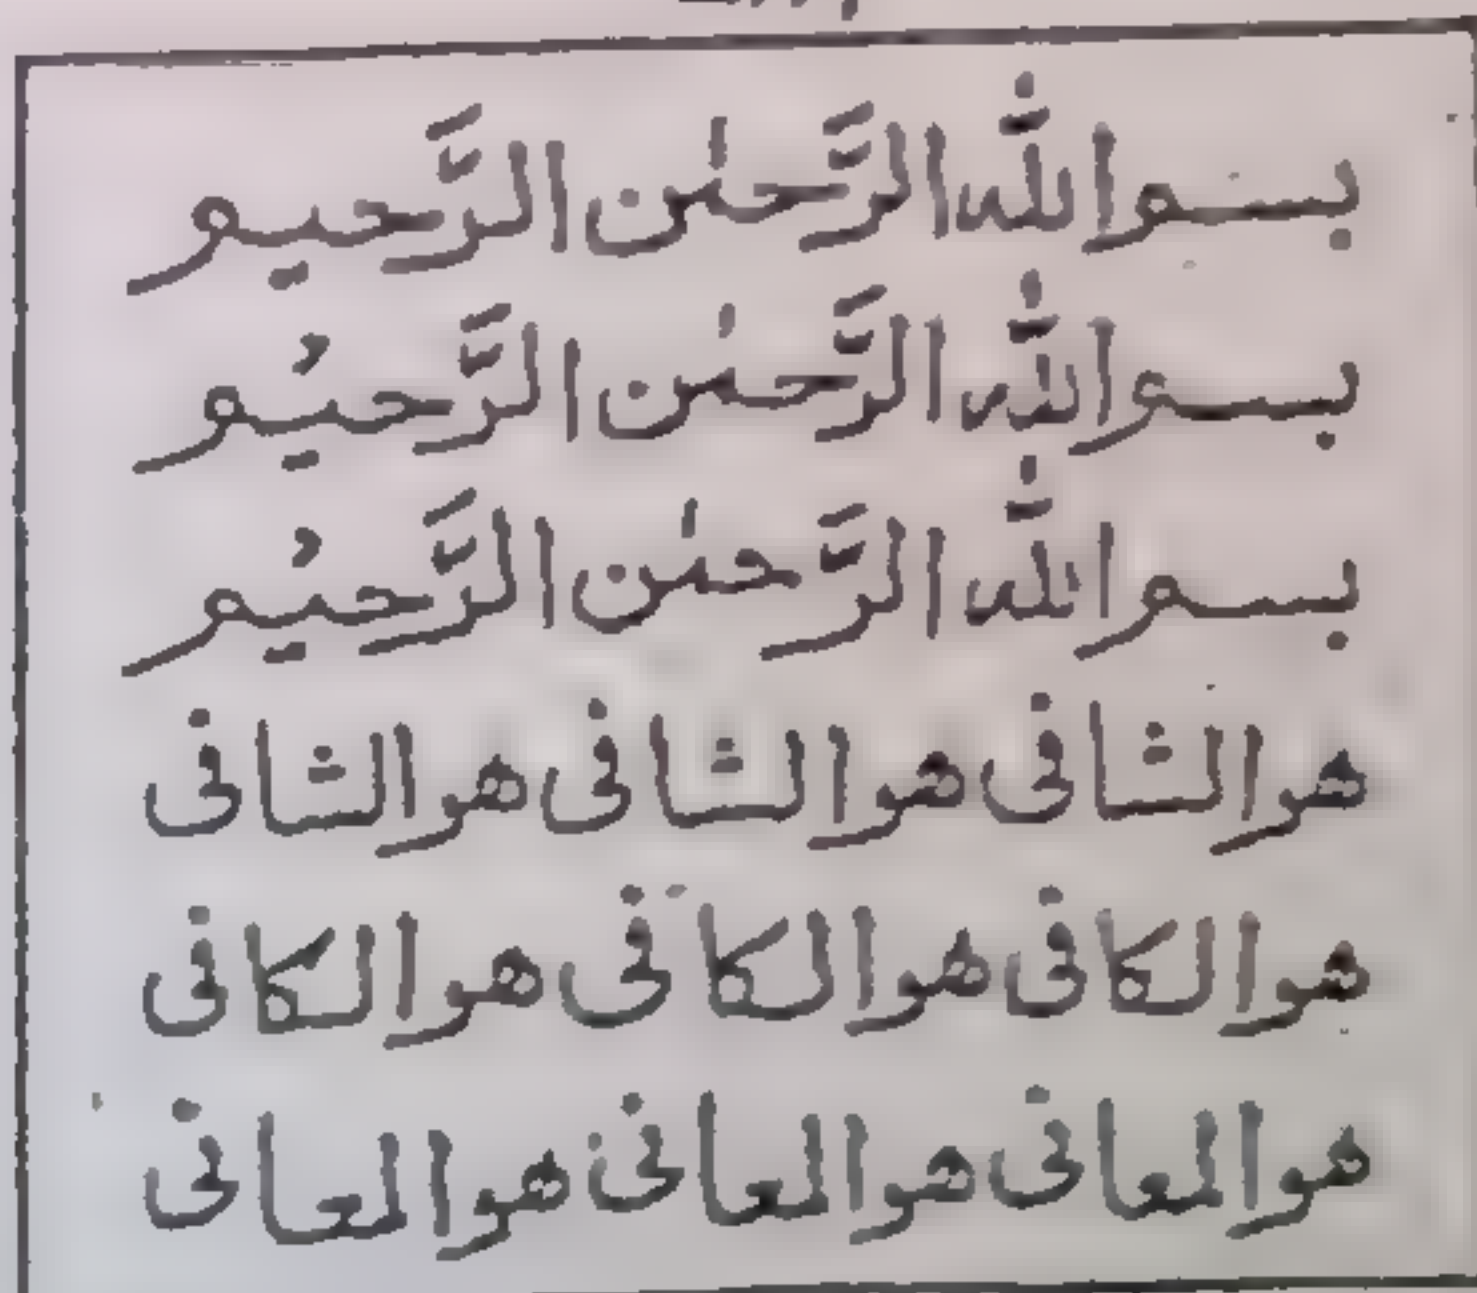 بسم الله الرَّحمٰن الرَّحيم
بسم الله الرَّحمٰن الرَّحيُم
بسم الله الرَّحمٰن الرَّحيُم
هو الشافی هو الشافی هو الشافی
هو الکافی هو الکافی هو الکافی
هو المعافی هو المعافی هو المعافی